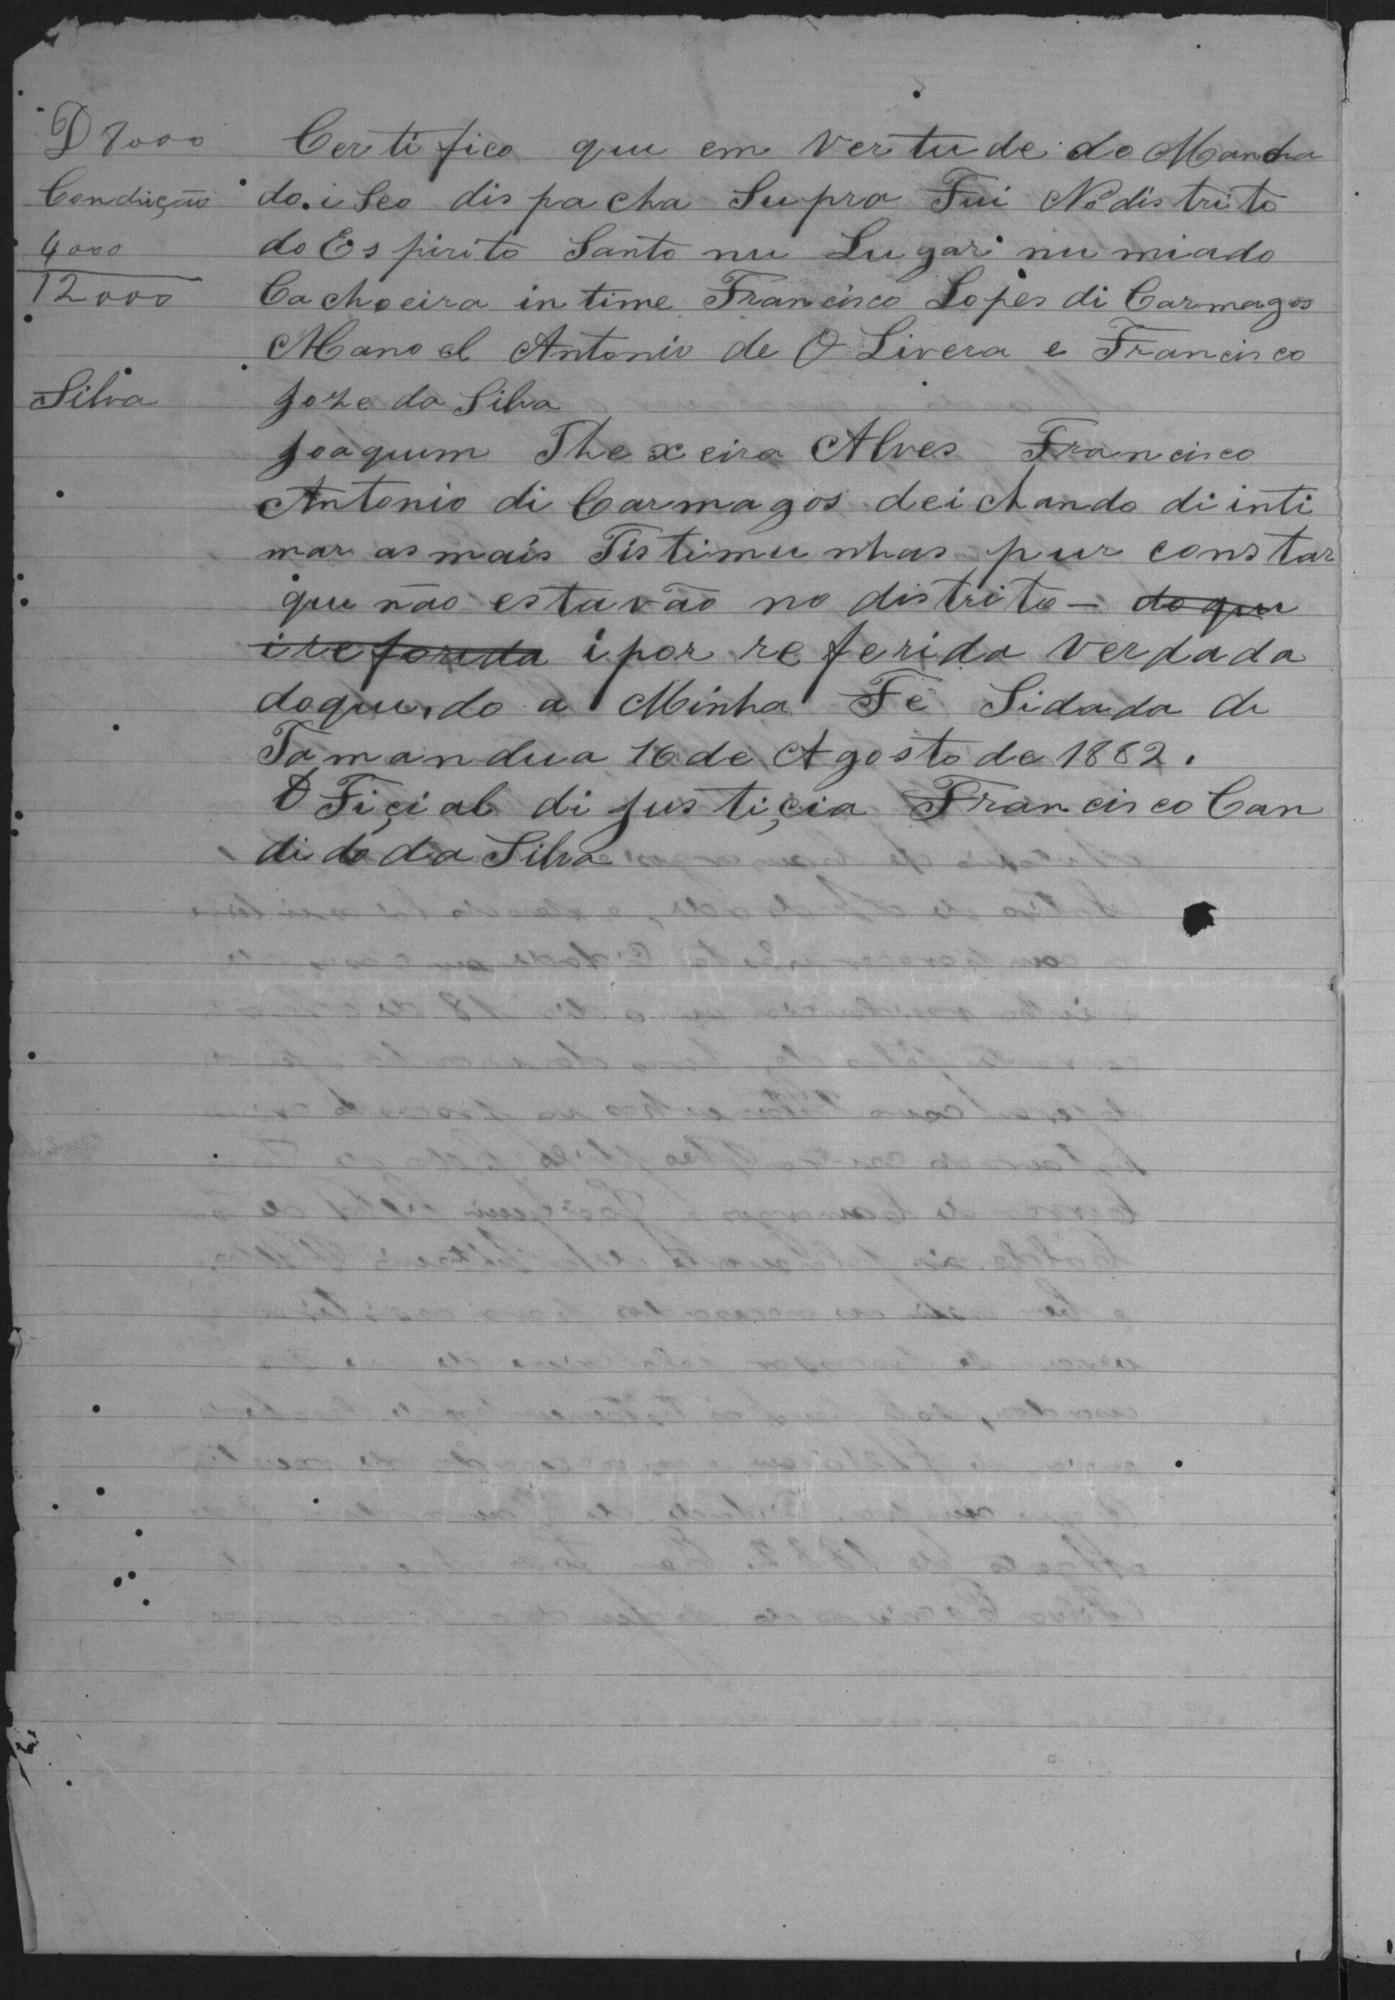 D 8000
Condução
4000
12000
Silva
Certifico qui em vertude do Manda
do. i Seo dispacha Supra Fui No distrito
do Espirito Santo nu Lugar nu miado
Cachoeira intime Francisco Lopes di Carmagos
Manoel Antonio de O Livera e Francisco
Joze da Silva
Joaquim Thexeira Alves Francisco
Antonio di Carmagos deichando di inti
mar as mais Tistimunhas pur constar
qui não estavão no distrito — do qui
i referida i por referida Verdada
do qui, do a Minha Fé Sidada di
Tamandua 16 de Agosto de 1882.
O Fiçial di justiçia Francisco Can
dido da Silva